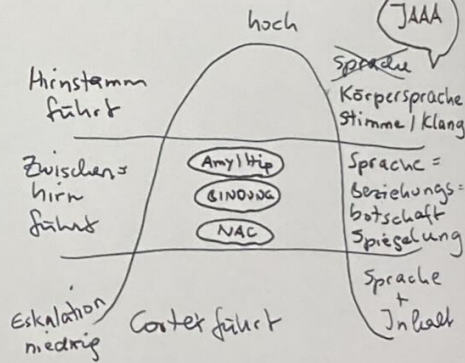 hoch
JAAA
Hirnstamm
führt
Sprache
Körpersprache
Stimme/Klang
Zwischen=
hirn
führt
Amy/Hip
BINDUNG
NAC
Sprache =
Beziehungs=
botschaft
Spiegelung
Eskalation
niedrig
Cortex führt
Sprache
+
Inhalt